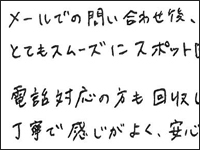 メールでの問い合わせ後、
とてもスムーズにスポット
電話対応の方も回収し
丁寧で感じがよく、安心